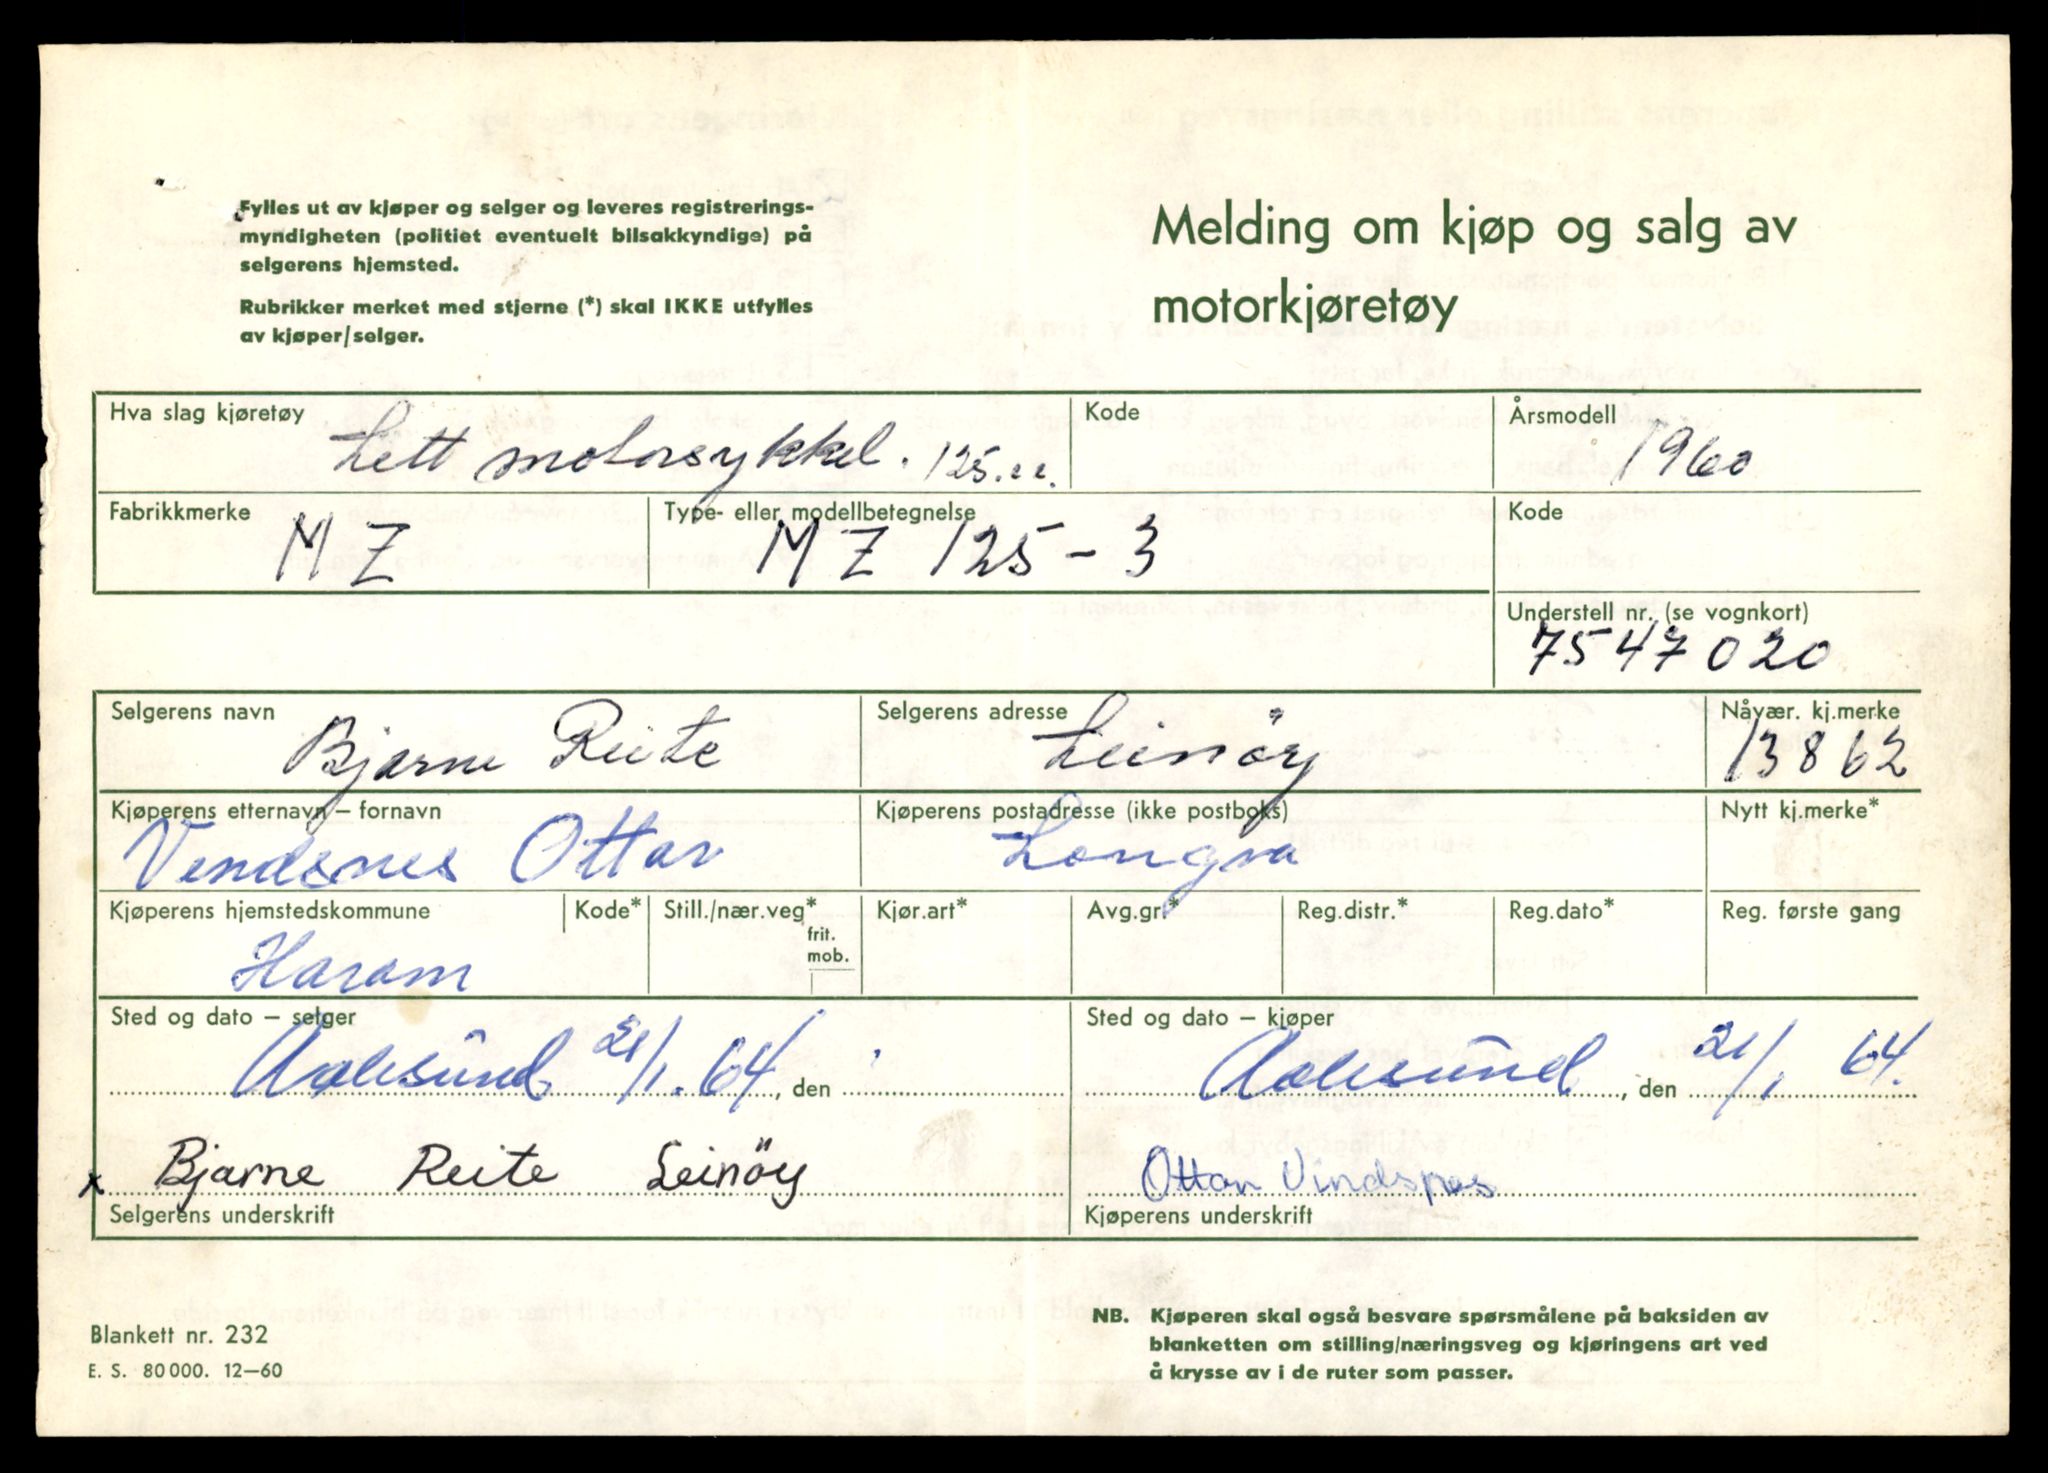 Fylles ut av kjøper og selger og leveres registrerings-
myndigheten (politiet eventuelt bilsakkyndige) på
selgerens hjemsted.
Rubrikker merket med stjerne (*) skal IKKE utfylles
av kjøper/selger.
Melding om kjøp og salg av
motorkjøretøy
Hva slag kjøretøy Kode Årsmodell
Lett motorsykkel. 125.cc. 1960
Fabrikkmerke Type- eller modellbetegnelse Kode
MZ MZ 125-3
Understell nr. (se vognkort)
7547020
Selgerens navn Selgerens adresse Nåvær. kj.merke
Bjarne Reite Leinöy 13862
Kjøperens etternavn – fornavn Kjøperens postadresse (ikke postboks) Nytt kj.merke*
Vendsnes Ottar Longva
Kjøperens hjemstedskommune Kode* Still./nær.veg* Kjør.art* Avg.gr.* Reg.distr.* Reg.dato* Reg. første gang
frit.
mob.
Haram
Sted og dato – selger Sted og dato – kjøper
Aalesund 21/1. 64, den Aalesund, den 21/1 64.
x Bjarne Reite Leinöy Ottar Vindsnes
Selgerens underskrift Kjøperens underskrift
Blankett nr. 232
E. S. 80 000. 12–60
NB. Kjøperen skal også besvare spørsmålene på baksiden av
blanketten om stilling/næringsveg og kjøringens art ved
å krysse av i de ruter som passer.